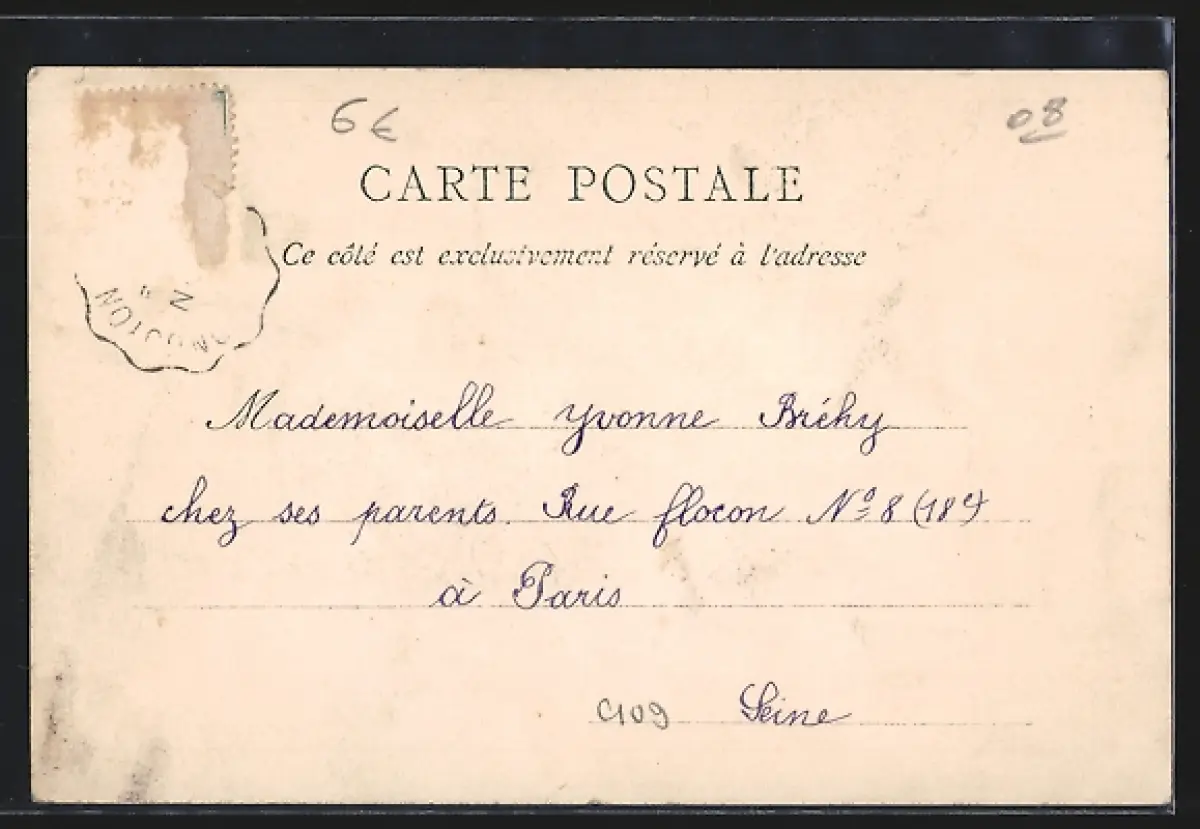 6€
08
CARTE POSTALE
Ce côté est exclusivement réservé à l'adresse
Mademoiselle Yvonne Bréhy
chez ses parents. Rue flocon Nº 8 (18e)
à Paris
C109 Seine